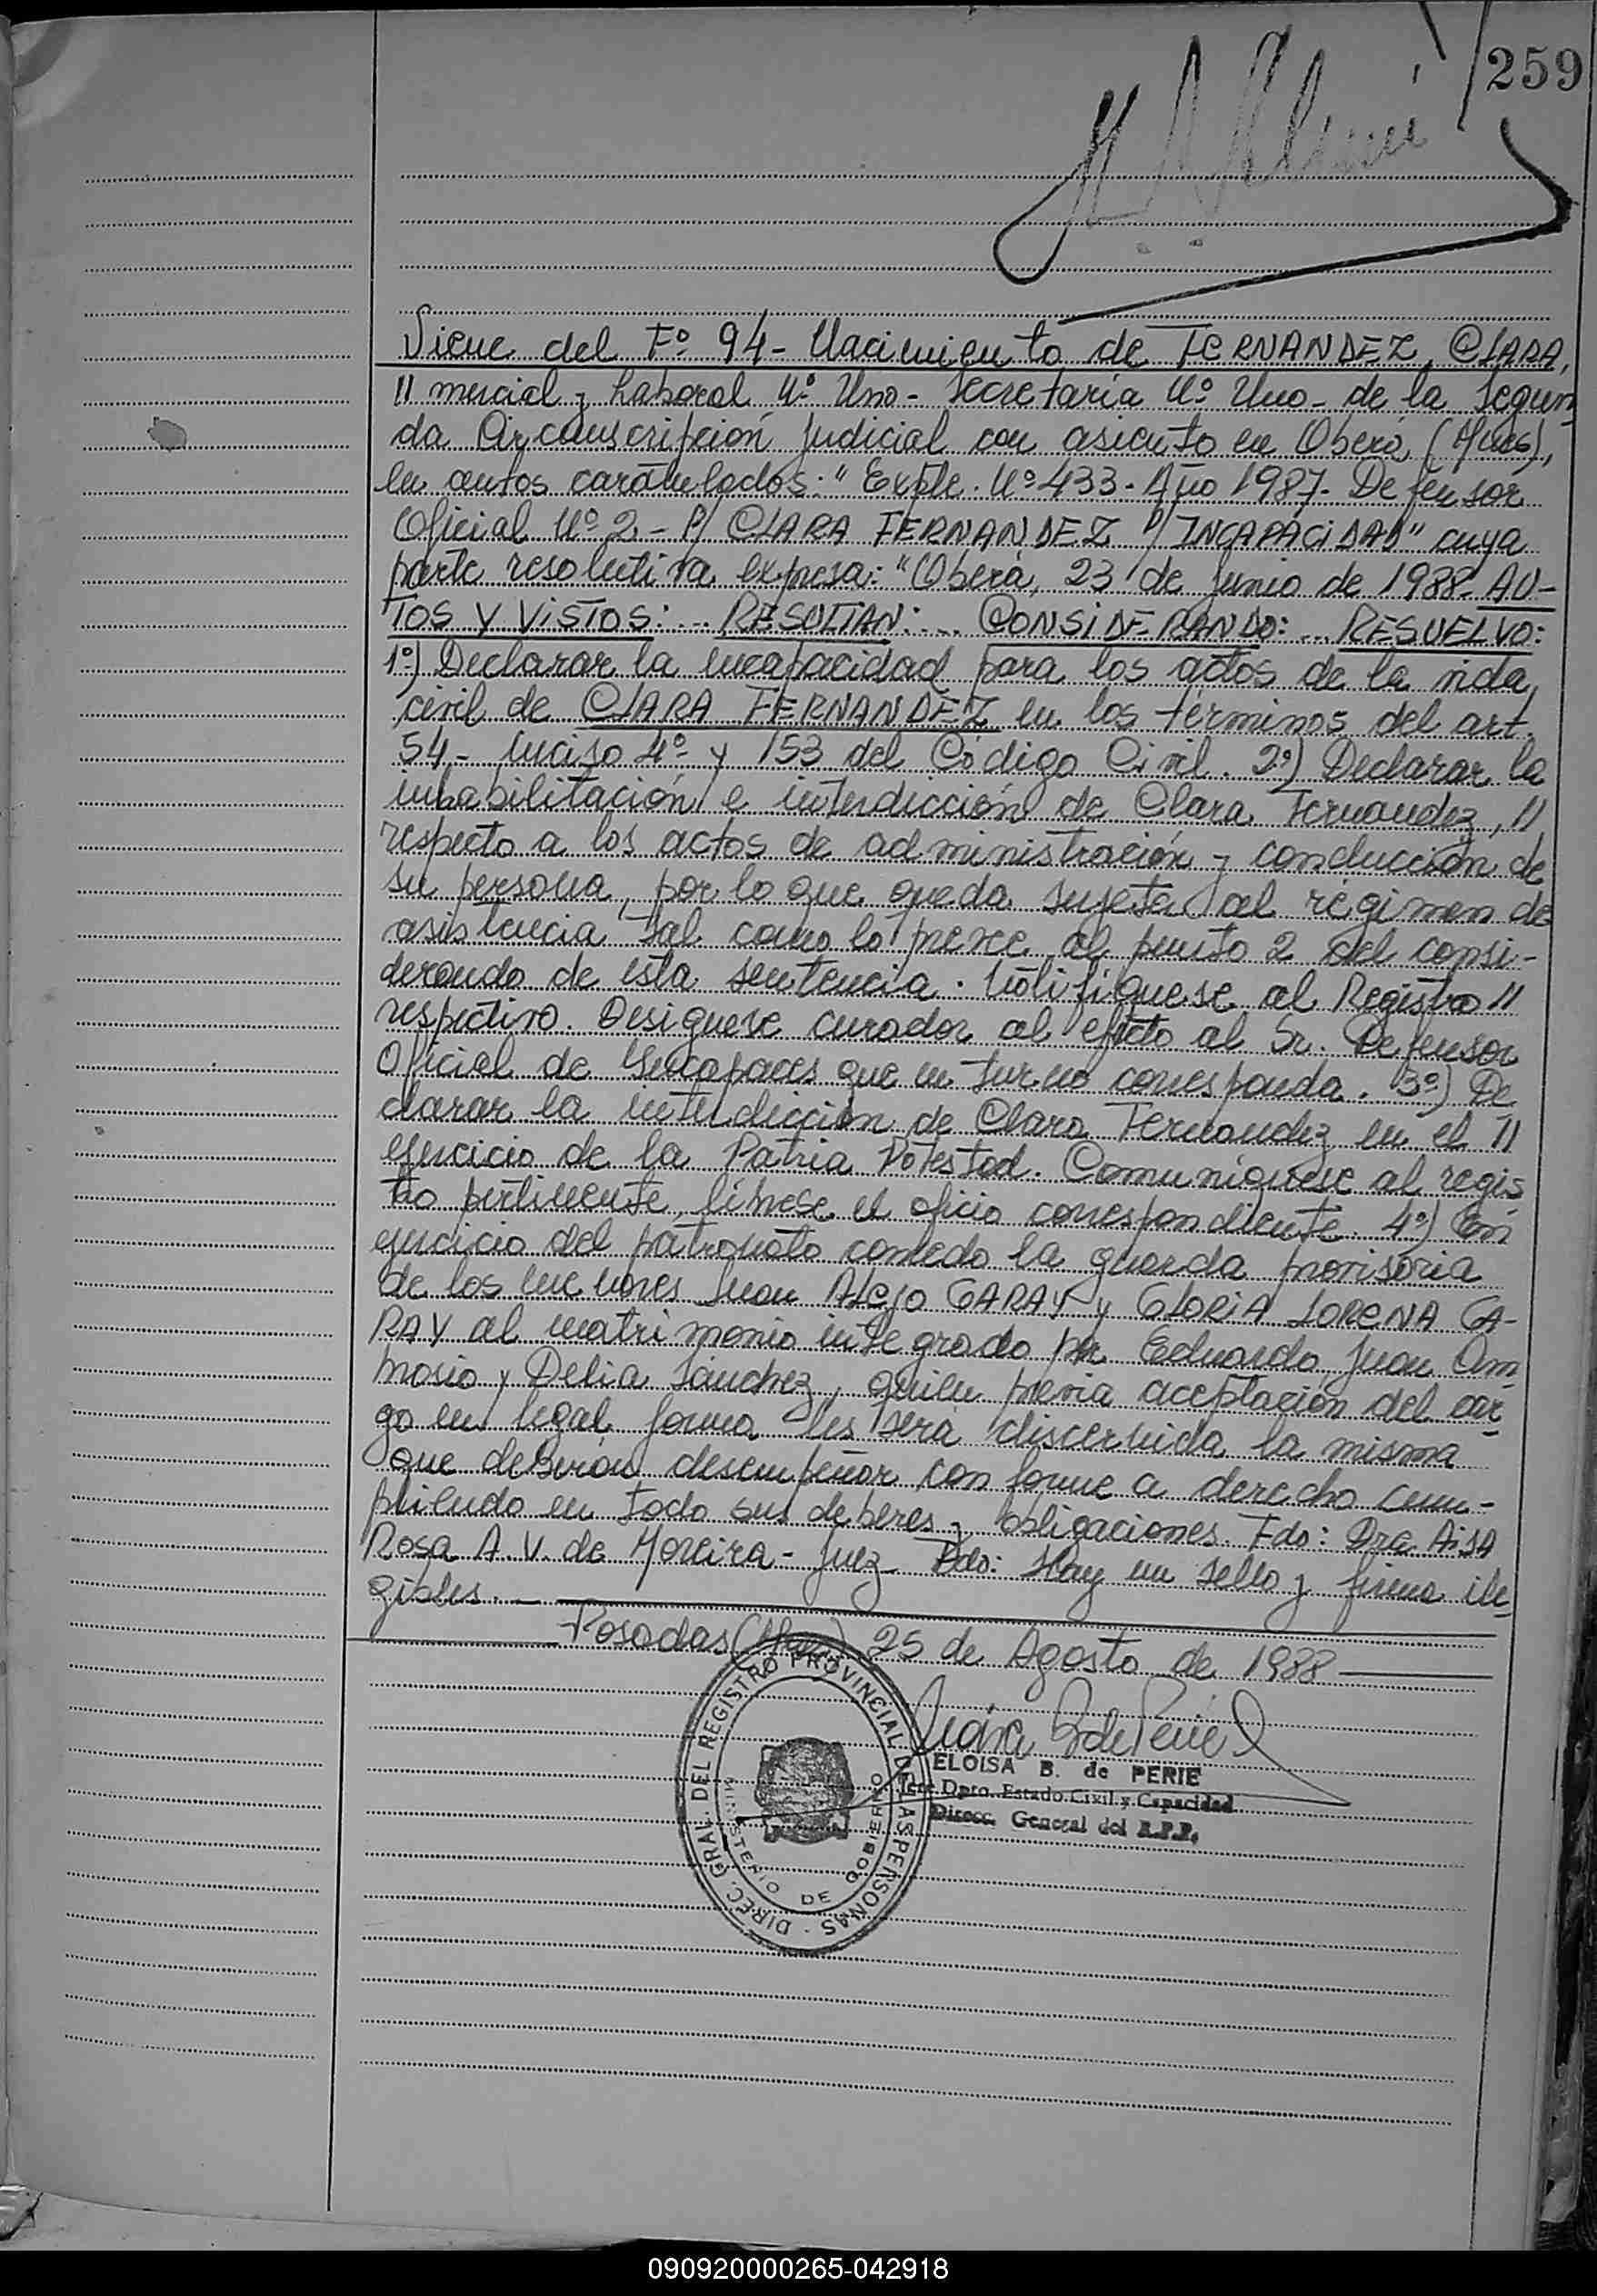 259
Viene del Fº 94 - Nacimiento de FERNANDEZ, CLARA,
// mercial y Laboral Nº Uno - Secretaría Nº Uno - de la Segun
da Circunscripción Judicial con asiento en Oberá, (Mnes),
en autos caratulados: "Expte. Nº 433 - Año 1987 - Defensor
Oficial Nº 2 - P/ CLARA FERNANDEZ S/ INCAPACIDAD" cuya
parte resolutiva expresa: "Oberá, 23 de junio de 1988 - AU-
TOS Y VISTOS: ... RESULTAN: ... CONSIDERANDO: ... RESUELVO:
1º) Declarar la incapacidad para los actos de la vida
civil de CLARA FERNANDEZ en los términos del art.
54 - inciso 4º y 153 del Código Civil. 2º) Declarar la
inhabilitación e interdicción de Clara Fernandez, //
respecto a los actos de administración y conducción de
su persona, por lo que queda sujeta al régimen de
asistencia tal como lo prevee al punto 2 del consi-
derando de esta sentencia. Notifiquese al Registro //
respectivo. Desiguese curador al efecto al Sr. Defensor
Oficial de Incapaces que en turno corresponda. 3º) De
clarar la interdicción de Clara Fernandez en el //
ejercicio de la Patria Potestad. Comuníquese al regis
tro pertinente, líbrese el oficio correspondiente. 4º) En
ejercicio del patronato concedo la guarda provisoria
de los menores Juan Alejo GARAY y GLORIA LORENA GA-
RAY al matrimonio integrado por Eduardo Juan Am
brosio y Delia Sánchez, quien previa aceptación del car
go en legal forma les será discernida la misma
que deberán desempeñar conforme a derecho cum-
pliendo en todo sus deberes y obligaciones. Fdo: Dra. AiSA
Rosa A. V. de Moreira - Juez - Fdo: Hay un sello y firma ile
gibles. -
Posadas (Mnes) 25 de Agosto de 1988
DIREC. GRAL. DEL REGISTRO PROVINCIAL DE LAS PERSONAS -
MINISTERIO DE GOBIERNO
ELOISA B. de PERIE
Jefe Dpto. Estado Civil y Capacidad
Direcc. General del R.P.P.
090920000265-042918